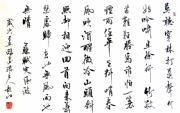 莫聽穿林打葉聲何
妨吟嘯且徐行竹杖
芒鞋輕勝馬誰怕一蓑
煙雨任平生料峭春風
吹酒醒微冷山頭斜
照卻相迎回首向來蕭
瑟處歸去也無風雨也
無晴 蘇軾定風波